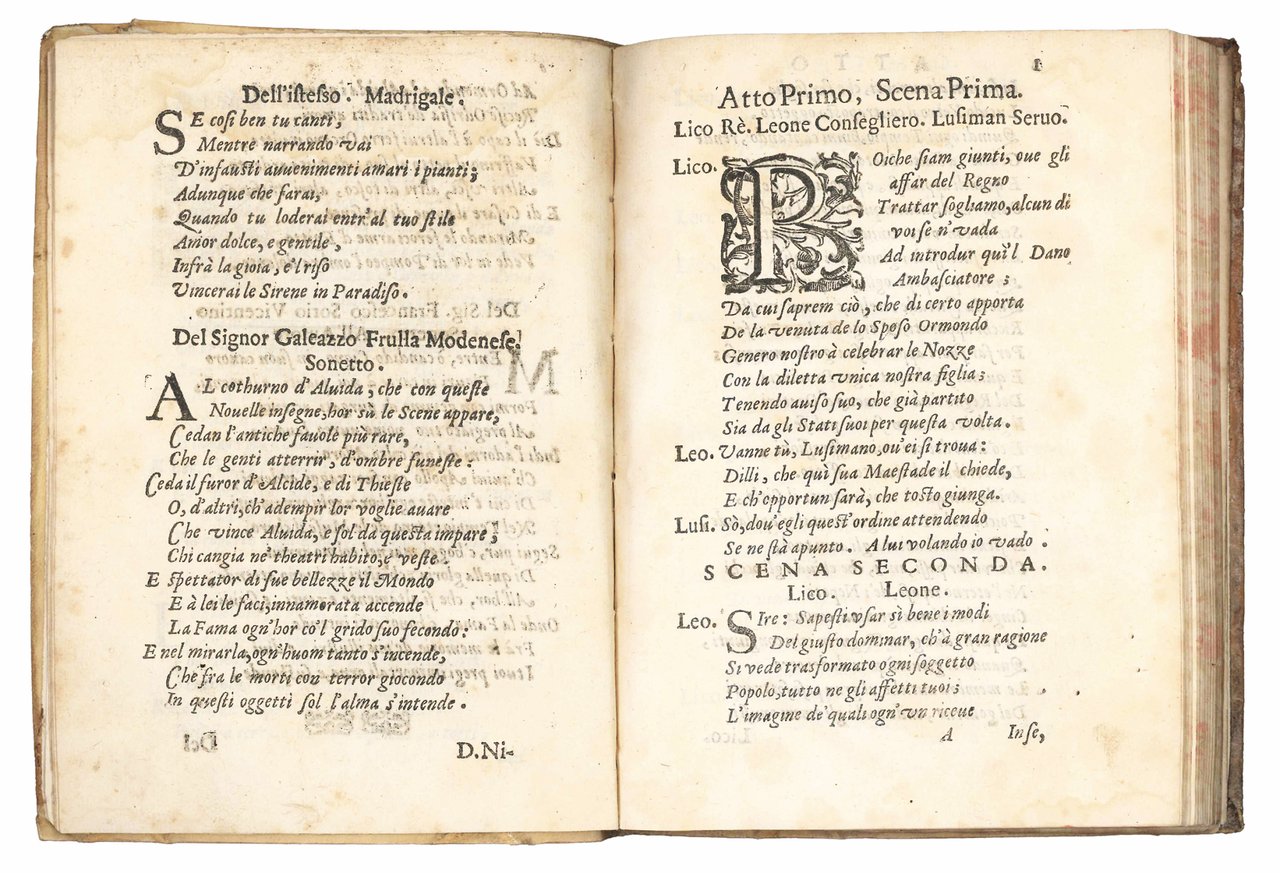 Dell'istesso. Madrigale.
SE così ben tu canti,
Mentre narrando vai
D'infausti avvenimenti amari i pianti;
Adunque che farai,
Quando tu loderai entr'al tuo stile
Amor dolce, e gentile,
Infrà la gioia, e'l riso
Vincerai le Sirene in Paradiso.
Del Signor Galeazzo Frulla Modenese.
Sonetto.
AL cothurno d'Aluida, che con queste
Nouelle insegne, hor sù le Scene appare,
Cedan l'antiche fauole più rare,
Che le genti atterrir, d'ombre funeste:
Ceda il furor d'Alcide, e di Thieste
O, d'altri, ch'adempir lor voglie auare
Che vince Aluida, e sol da questa impare;
Chi cangia ne' theatri habito, e veste.
E spettator di sue bellezze il Mondo
E à lei le faci, innamorata accende
La Fama ogn'hor co'l grido suo fecondo:
E nel mirarla, ogn'huom tanto s'incende,
Che fra le morti con terror giocondo
In questi oggetti sol l'alma s'intende.
D.Ni-
1
Atto Primo, Scena Prima.
Lico Rè. Leone Consegliero. Lusiman Seruo.
Lico. POiche siam giunti, oue gli
affar del Regno
Trattar sogliamo, alcun di
voi se n'vada
Ad introdur quì'l Dano
Ambasciatore;
Da cui saprem ciò, che di certo apporta
De la venuta de lo Sposo Ormondo
Genero nostro à celebrar le Nozze
Con la diletta vnica nostra figlia;
Tenendo auiso suo, che già partito
Sia da gli Stati suoi per questa volta.
Leo. Vanne tù, Lusimano, ou'ei si troua:
Dilli, che quì sua Maestade il chiede,
E ch'opportun sarà, che tosto giunga.
Lusi. Sò, dou'egli quest'ordine attendendo
Se ne stà apunto. A lui volando io vado.
SCENA SECONDA.
Lico. Leone.
Leo. SIre: Sapesti vsar sì bene i modi
Del giusto dominar, ch'à gran ragione
Si vede trasformato ogni soggetto
Popolo, tutto ne gli affetti tuoi;
L'imagine de' quali ogn'vn riceue
A In se,